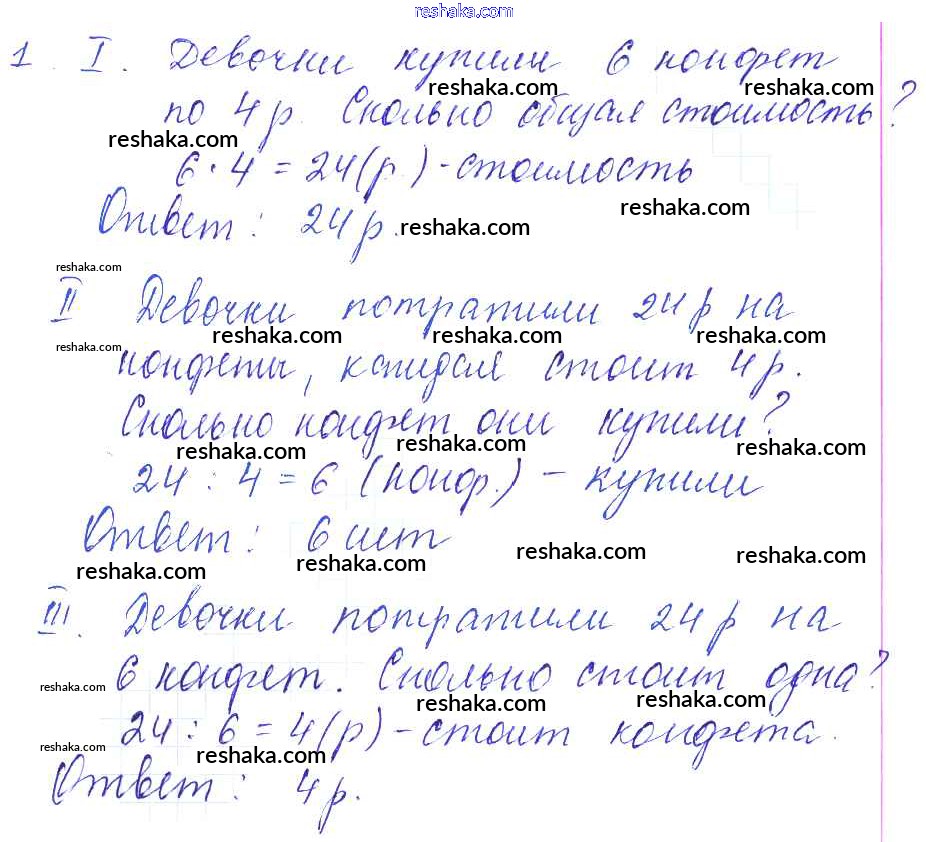 reshaka.com
1. I. Девочки купили 6 конфет
reshaka.com reshaka.com
по 4 р. Сколько общая стоимость?
reshaka.com reshaka.com
6 · 4 = 24 (р.) - стоимость
reshaka.com
Ответ: 24 р.
reshaka.com
reshaka.com
II Девочки потратили 24 р на
reshaka.com reshaka.com reshaka.com
reshaka.com
конфеты, каждая стоит 4 р.
Сколько конфет они купили?
reshaka.com reshaka.com reshaka.com
24 : 4 = 6 (конф.) - купили
Ответ: 6 шт
reshaka.com reshaka.com reshaka.com
III. Девочки потратили 24 р на
6 конфет. Сколько стоит одна?
reshaka.com reshaka.com reshaka.com
24 : 6 = 4 (р) - стоит конфета.
reshaka.com reshaka.com
Ответ: 4 р.